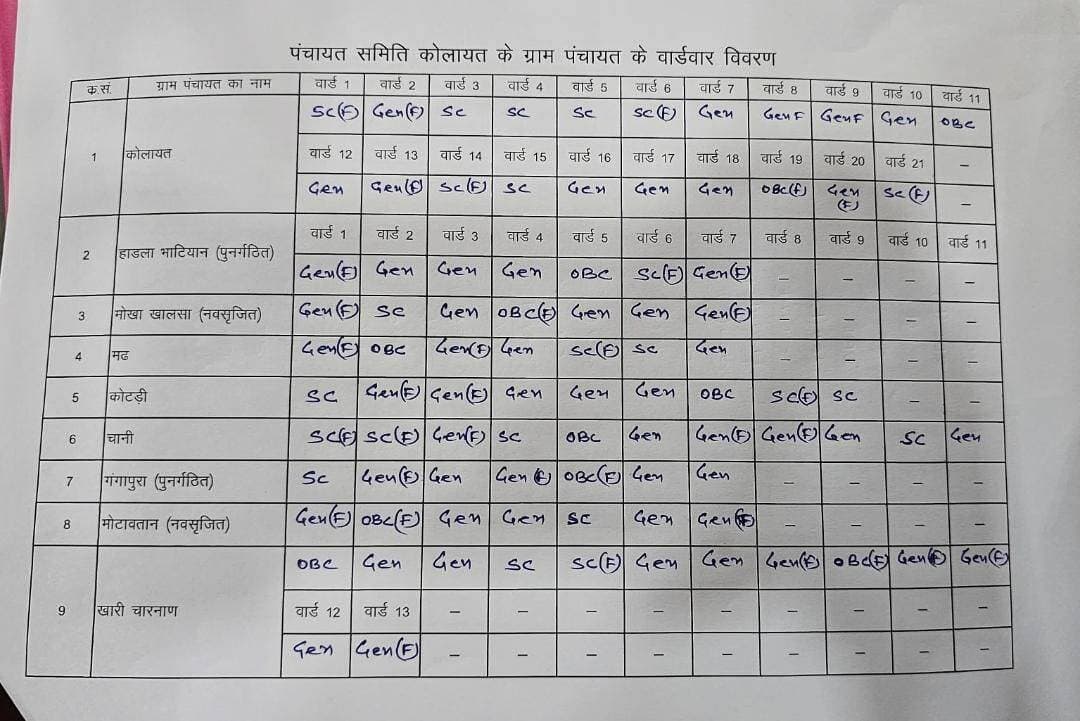 पंचायत समिति कोलायत के ग्राम पंचायत के वार्डवार विवरण
क्र.सं. ग्राम पंचायत का नाम वार्ड 1 वार्ड 2 वार्ड 3 वार्ड 4 वार्ड 5 वार्ड 6 वार्ड 7 वार्ड 8 वार्ड 9 वार्ड 10 वार्ड 11
SC(F) Gen(F) SC SC SC SC(F) Gen Gen F Gen F Gen OBC
1 कोलायत वार्ड 12 वार्ड 13 वार्ड 14 वार्ड 15 वार्ड 16 वार्ड 17 वार्ड 18 वार्ड 19 वार्ड 20 वार्ड 21 –
Gen Gen(F) SC(F) SC Gen Gen Gen OBC(F) Gen (F) SC(F) –
2 हाडला भाटियान (पुनर्गठित) वार्ड 1 वार्ड 2 वार्ड 3 वार्ड 4 वार्ड 5 वार्ड 6 वार्ड 7 वार्ड 8 वार्ड 9 वार्ड 10 वार्ड 11
Gen(F) Gen Gen Gen OBC SC(F) Gen(F) – – – –
3 मोखा खालसा (नवसृजित) Gen(F) SC Gen OBC(F) Gen Gen Gen(F) – – – –
4 मढ Gen(F) OBC Gen(F) Gen SC(F) SC Gen – – – –
5 कोटड़ी SC Gen(F) Gen(F) Gen Gen Gen OBC SC(F) SC – –
6 चानी SC(F) SC(F) Gen(F) SC OBC Gen Gen(F) Gen(F) Gen SC Gen
7 गंगापुरा (पुनर्गठित) SC Gen(F) Gen Gen (F) OBC(F) Gen Gen – – – –
8 मोटावतान (नवसृजित) Gen(F) OBC(F) Gen Gen SC Gen Gen(F) – – – –
OBC Gen Gen SC SC(F) Gen Gen Gen(F) OBC(F) Gen(F) Gen(F)
9 खारी चारनाण वार्ड 12 वार्ड 13 – – – – – – – – –
Gen Gen(F) – – – – – – – – –